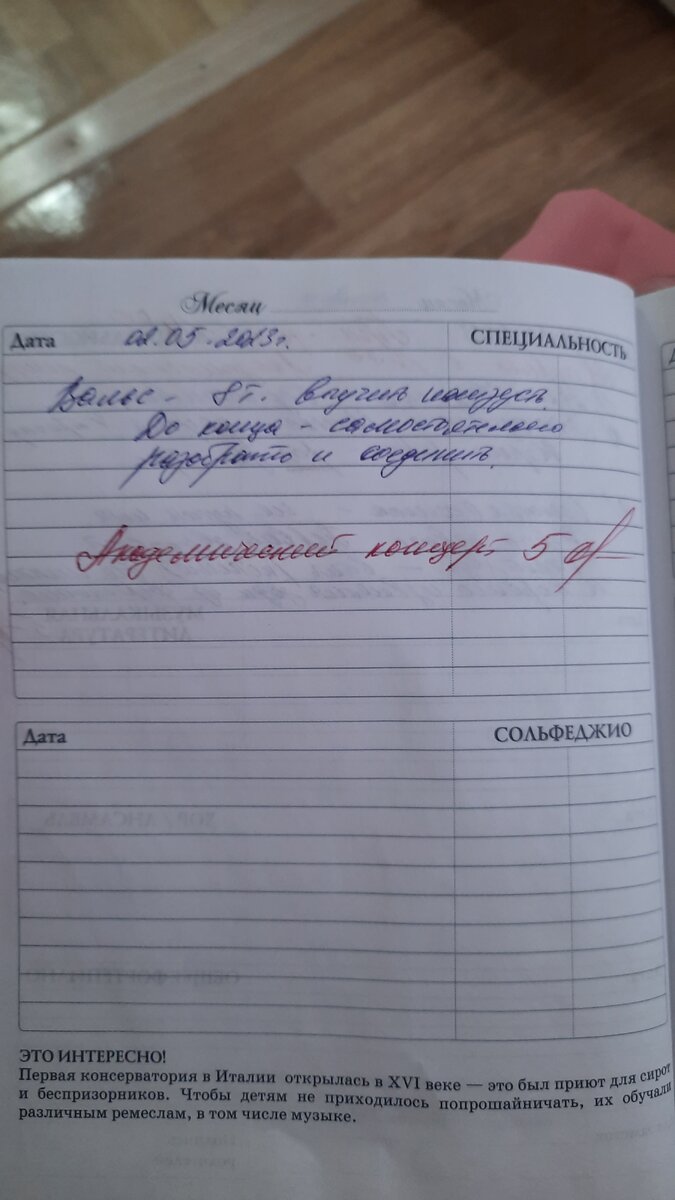 Месяц
Дата 02.05.2023г. СПЕЦИАЛЬНОСТЬ
Вальс - 8т. выучить наизусть.
До конца - самостоятельно
разобрать и соединить.
Академический концерт 5
Дата СОЛЬФЕДЖИО
ЭТО ИНТЕРЕСНО!
Первая консерватория в Италии открылась в XVI веке — это был приют для сирот
и беспризорников. Чтобы детям не приходилось попрошайничать, их обучали
различным ремеслам, в том числе музыке.